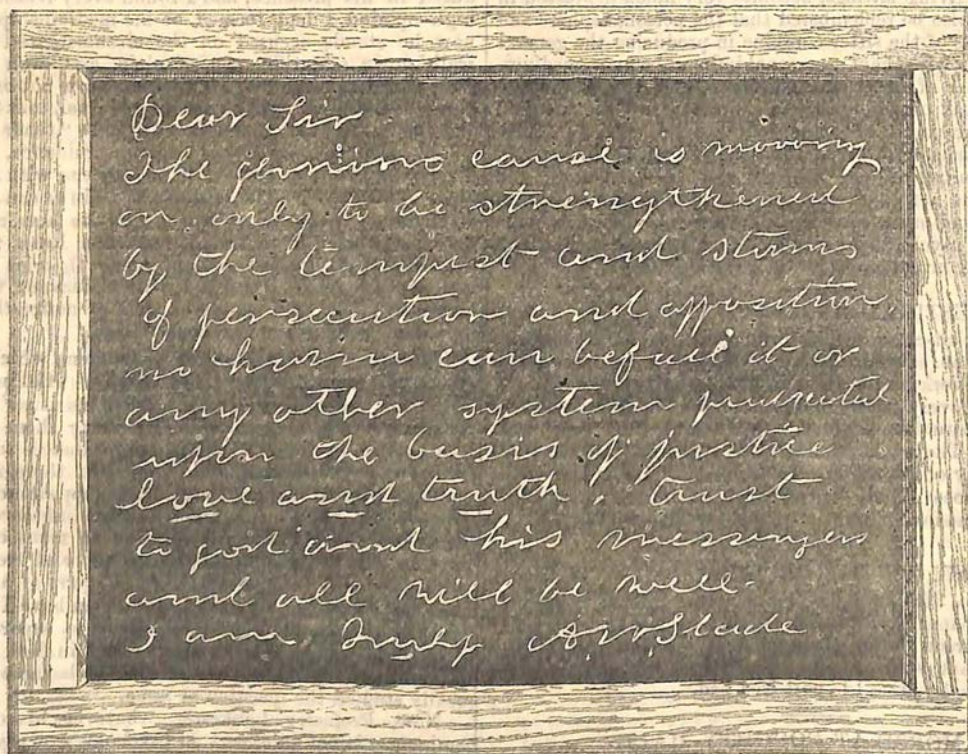 Dear Sir
The glorious cause is mooving
on only to be strengthened
by the tempest and storms
of persecution and opposition,
no harm can befall it or
any other system
upon the basis of justice
love and truth, trust
to god and his messengers
and all will be well.
I am Truly A.W. Slade